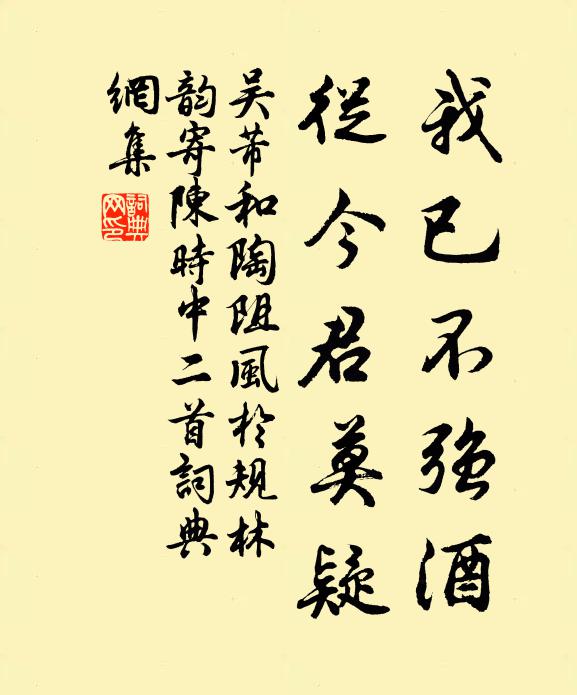 我已不強酒
從今君莫疑
吴芾和陶阻風於規林
韵寄陳時中二首詞典
網集
詞典
网印